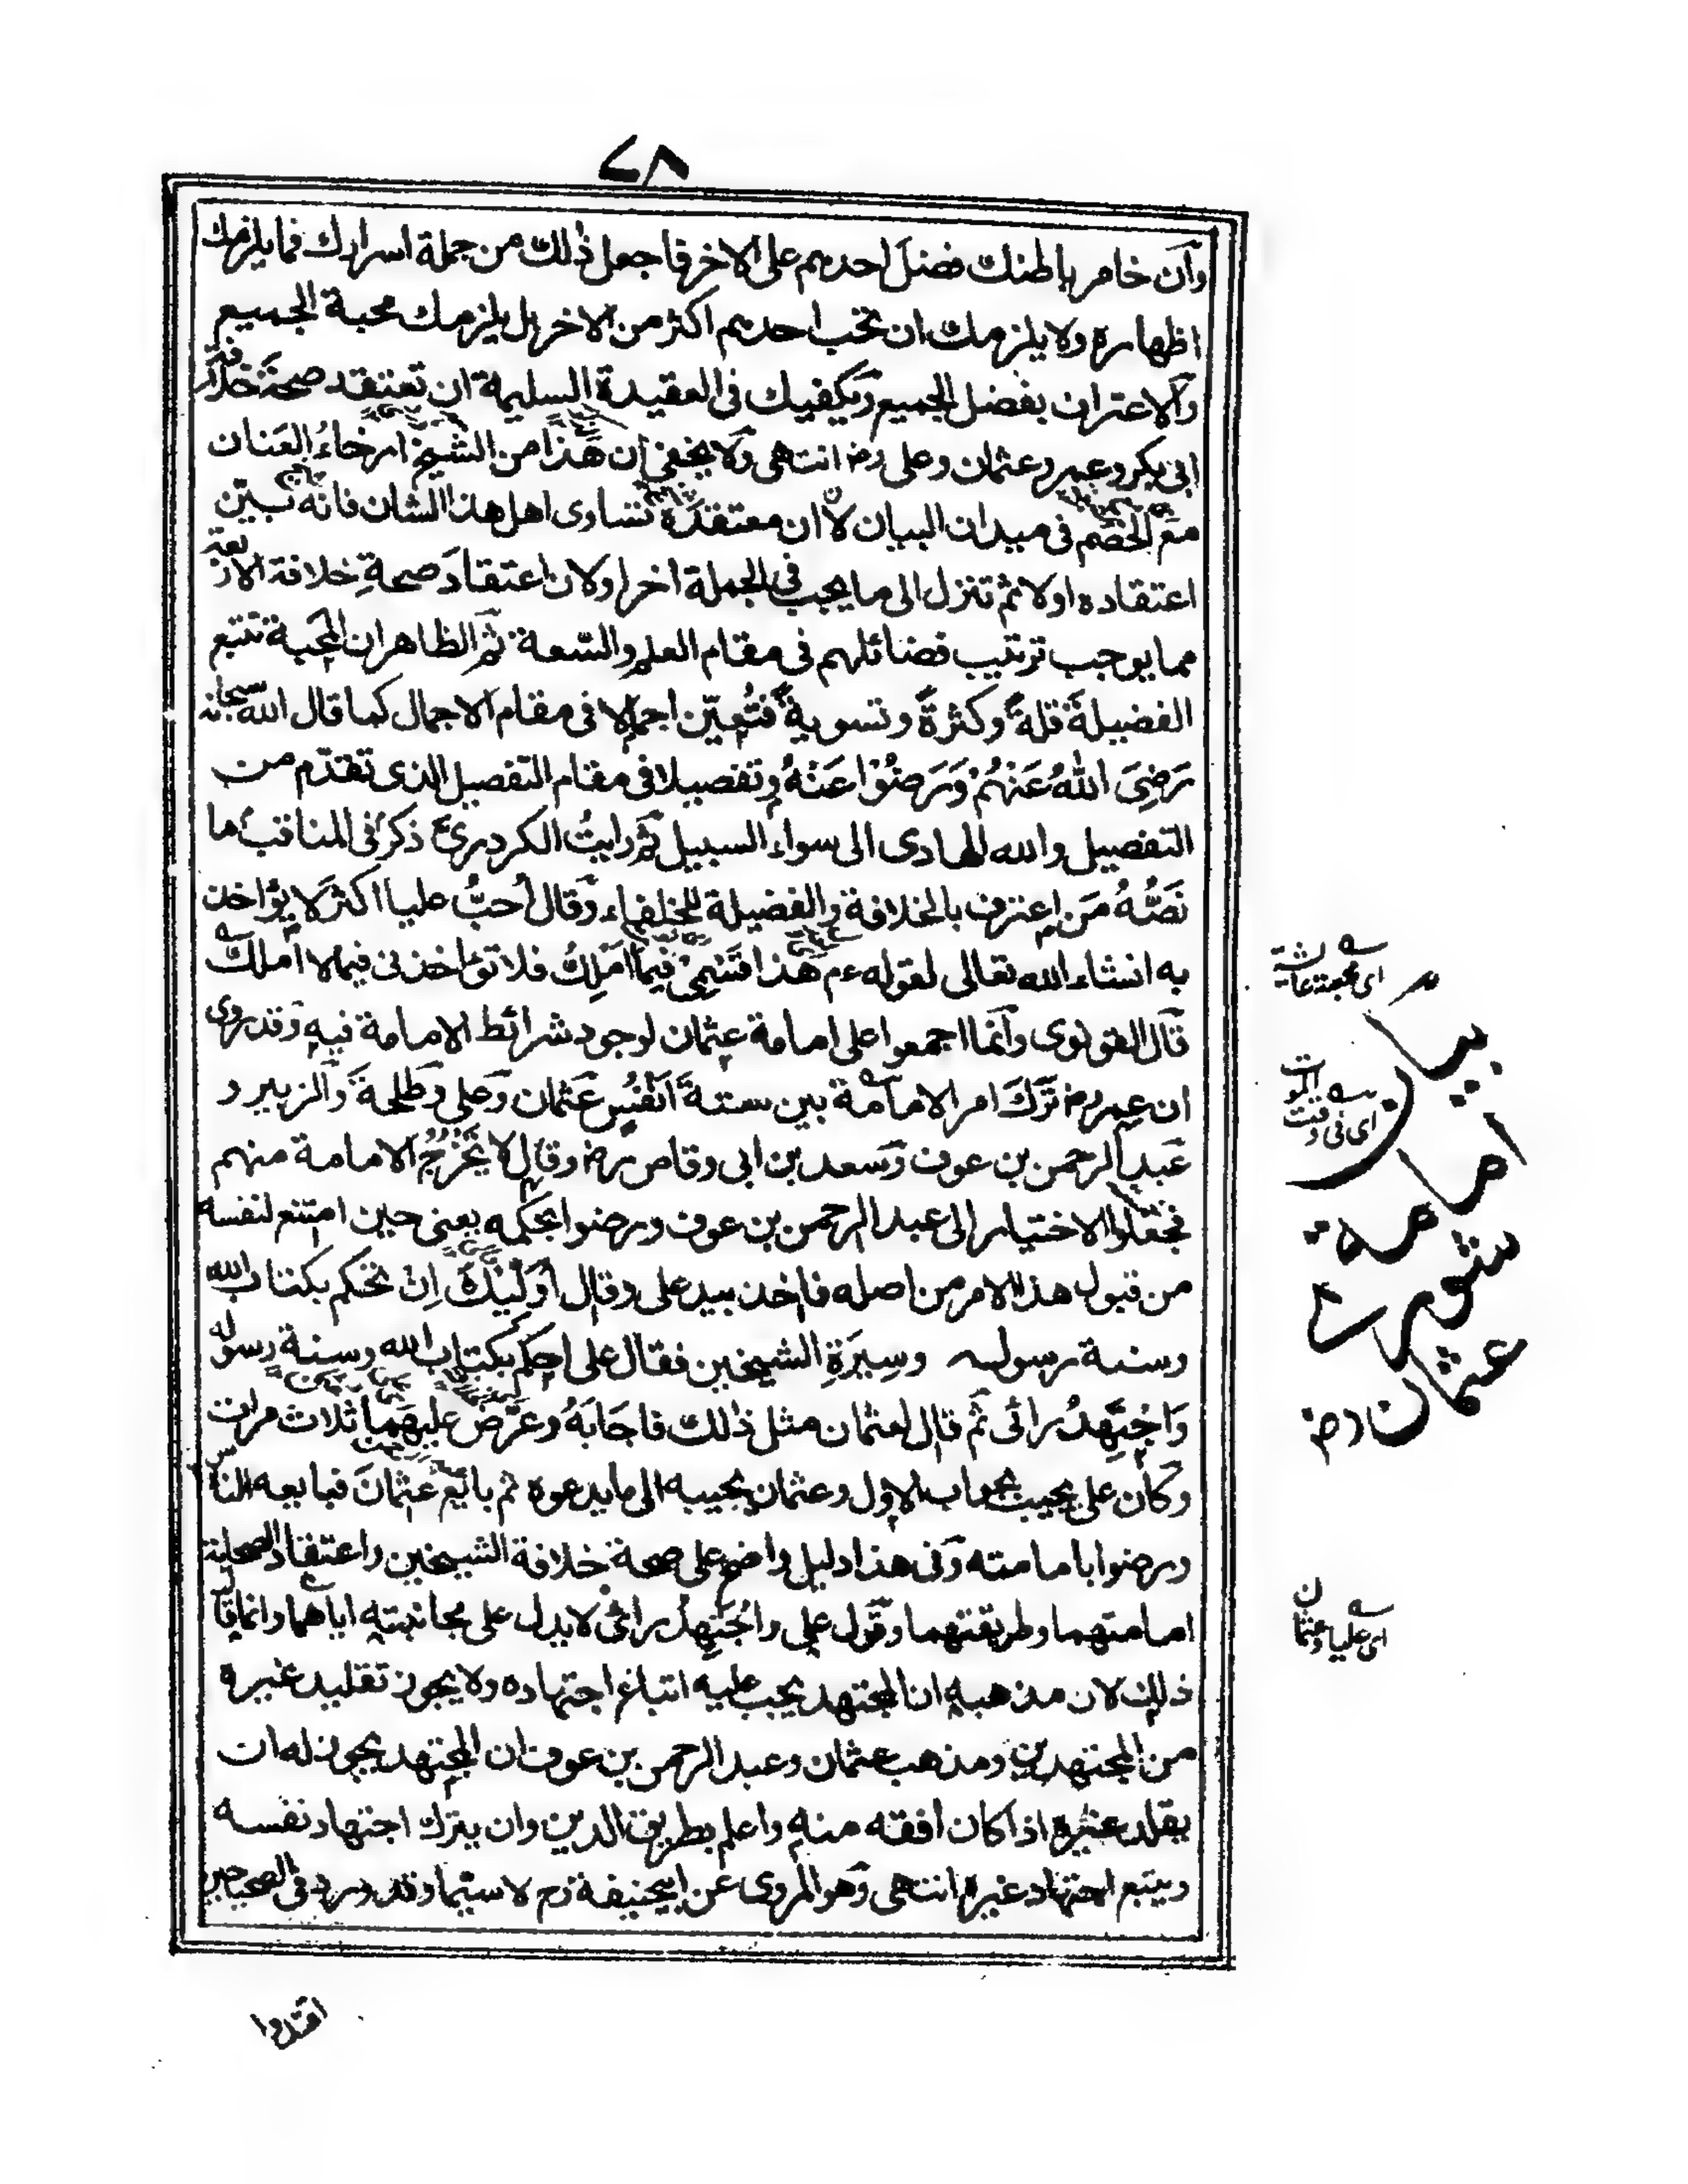 ٧٨
وان خامر باطنك فضل احدهم على الاخر فاجعل ذلك من جملة اسرارك فما يلزمك
اظهاره ولا يلزمك ان تحب احدهم اكثر من الاخر بل يلزمك محبة الجميع
والاعتراف بفضل الجميع ويكفيك فى العقيدة السليمة ان تعتقد صحة خلافة
ابى بكر وعمر وعثمان وعلى رض انتهى ولا يخفى ان هذا من الشيخ ارخاءُ العنان
مع الخصم فى ميدان البيان لا ان معتقده تساوى اهل هذا الشان فانه بيّن
اعتقاده اولا ثم تنزل الى ما يجب فى الجملة اخرا ولان اعتقادَ صحةِ خلافة الاربعة
مما يوجب ترتيب فضائلهم فى مقام العلم والسّعة ثم الظاهر ان المحبة تتبع
الفضيلةَ قلةً وكثرةً وتسويةً فتُعيّن اجمالا فى مقام الاجمال كما قال الله سبحانه
رَضِىَ اللهُ عَنْهُمْ وَرَضُوْا عَنْهُ وتفصيلا فى مقام التفصيل الذى تقدّم من
التفصيل والله الهادى الى سواء السبيل ثم رايتُ الكردرى ذكر فى المناقب ما
نَصُّهُ مَن اعترف بالخلافة والفضيلة للخلفاء وقال اُحبُّ عليا اكثر لا يؤاخذ
به انشاء الله تعالى لقوله عم هذا قَسْمِىْ فيما اَمْلِكُ فلا تؤاخذنى فيما لا املك
قال القونوى وانما اجمعوا على امامة عثمان لوجود شرائط الامامة فيه وقد روى
ان عمر رض تَرَكَ امر الامامة بين ستة اَنْفُسٍ عثمان وعلى وطلحةَ والزبير و
عبد الرحمن بن عوف وسعد بن ابى وقاص رض وقال لا تَخْرُجُ الامامة منهم
فجعلوا الاختيار الى عبد الرحمن بن عوف ورضوا بحكمه يعنى حين امتنع لنفسه
من قبول هذا الامر من اصله فاخذ بيد على وقال اُوَلِّيْكَ اِنْ تحكم بكتاب الله
وسنة رسوله وسِيرَةِ الشيخين فقال على احكم بكتاب الله وسنة رسوله
وَاجْتَهِدُ برائى ثم قال لعثمان مثل ذلك فاجَابَهُ وعرَّض عليهما ثلاث مرات
وكان على يجيب بجواب الاول وعثمان يجيبه الى ما يدعوه ثم بايع عثمانَ فبايعه الناس
ورضوا بامامته وفى هذا دليل واضح على صحة خلافة الشيخين واعتقاد الصحابة
امامتهما وطريقتهما وقول على واجْتَهِدُ برائى لا يدل على مجانبته اياهما وانما قال
ذلك لان مذهبه ان المجتهد يجب عليه اتباع اجتهاده ولا يجوز تقليد غيره
من المجتهدين ومذهب عثمان وعبد الرحمن بن عوف ان المجتهد يجوز له ان
يقلد غيره اذا كان افقه منه واعلم بطريق الدين وان يترك اجتهاد نفسه
ويتبع اجتهاد غيره انتهى وهو المروى عن ابيحنيفة رح لا سيّما وقد ورد فى الصحيحين
اقتدوا
اى محبة عائشة
بيان
اى فى وقت الموت
امامة
عثمان رض
اى عليا وعثمان